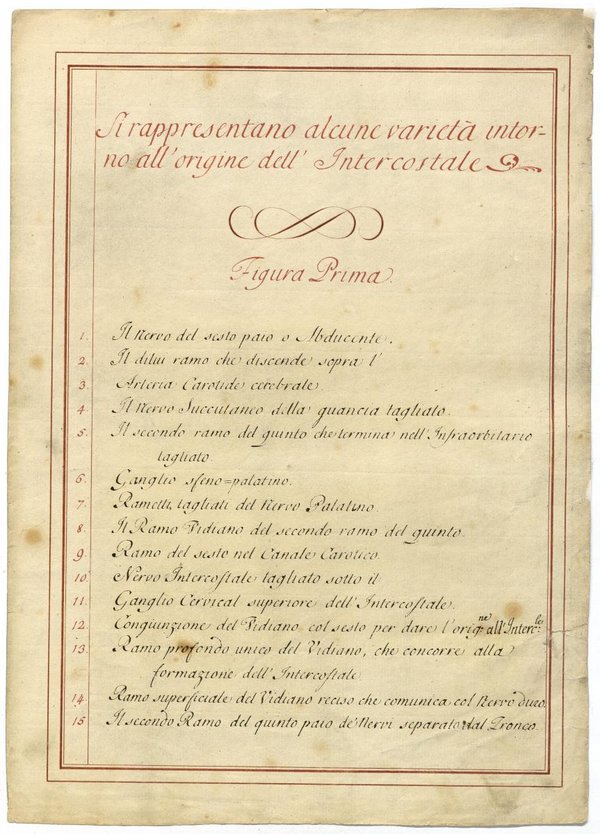 Si rappresentano alcune varietà intor-
no all'origine dell' Intercostale
Figura Prima.
1. Il Nervo del sesto paio o Abducente.
2. Il dilui ramo che discende sopra l'
3. Arteria Carotide cerebrale
4. Il Nervo Succutaneo della guancia tagliato.
5. Il secondo ramo del quinto che termina nell'Infraorbitario
tagliato.
6. Ganglio sfeno=palatino.
7. Rametti tagliati del Nervo Palatino.
8. Il Ramo Vidiano del secondo ramo del quinto.
9. Ramo del sesto nel Canale Carotico.
10. Nervo Intercostale tagliato sotto il
11. Ganglio Cervical superiore dell'Intercostale.
12. Congiunzione del Vidiano col sesto per dare l'orig.ne all'Interc.le
13. Ramo profondo unico del Vidiano, che concorre alla
formazione dell'Intercostale.
14. Ramo superficiale del Vidiano reciso che comunica col Nervo duro.
15. Il secondo Ramo del quinto paio de' Nervi separato dal Tronco.